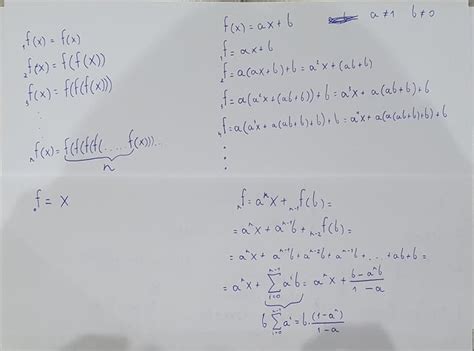 ₁f(x) = f(x)
₂f(x) = f(f(x))
₃f(x) = f(f(f(x)))
⋮
ₙf(x) = f(f(f(f(.....f(x)))...
n
₀f = x
f(x) = ax + b    a ≠ 1    b ≠ 0
₁f = ax + b
₂f = a(ax + b) + b = a²x + (ab + b)
₃f = a(a²x + (ab + b)) + b = a³x + a(ab + b) + b
₄f = a(a³x + a(ab + b) + b) + b = a⁴x + a(a(ab + b) + b) + b
⋮
ₙf = aⁿx + ₙ₋₁f(b) =
= aⁿx + aⁿ⁻¹b + ₙ₋₂f(b) =
= aⁿx + aⁿ⁻¹b + aⁿ⁻²b + aⁿ⁻³b + ... + ab + b =
= aⁿx + ∑_{i=0}^{n-1} aⁱb = aⁿx + (b - aⁿb)/(1 - a)
b ∑_{i=0}^{n-1} aⁱ = b · (1 - aⁿ)/(1 - a)